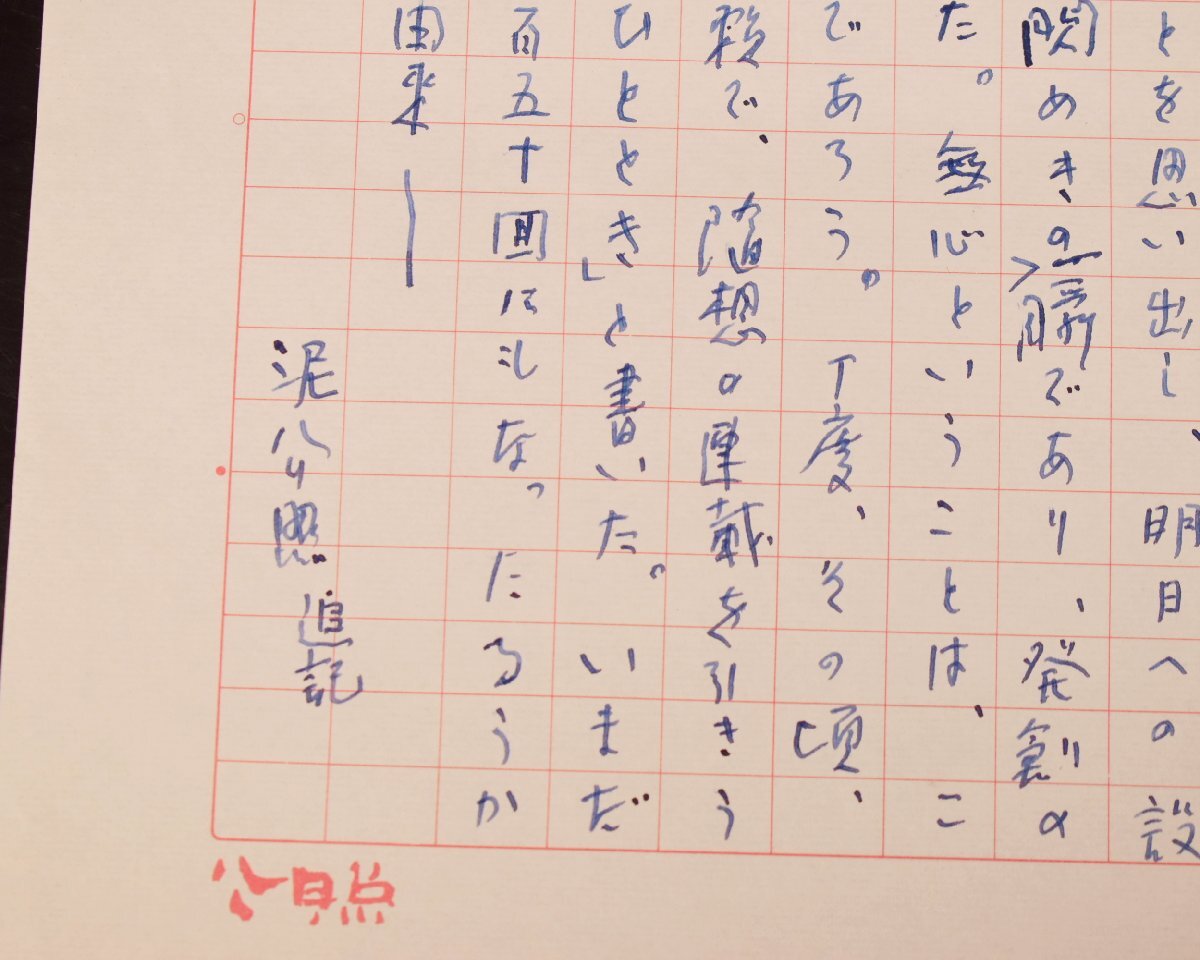 とを思い出し、明日への設
閃めきの一瞬であり、発創の
た。無心ということは、こ
であろう。丁度、その頃、
頼で、随想の連載を引きう
ひととき」と書いた。いまだ
百五十回にもなっただろうか
由来――
泥公照 追記